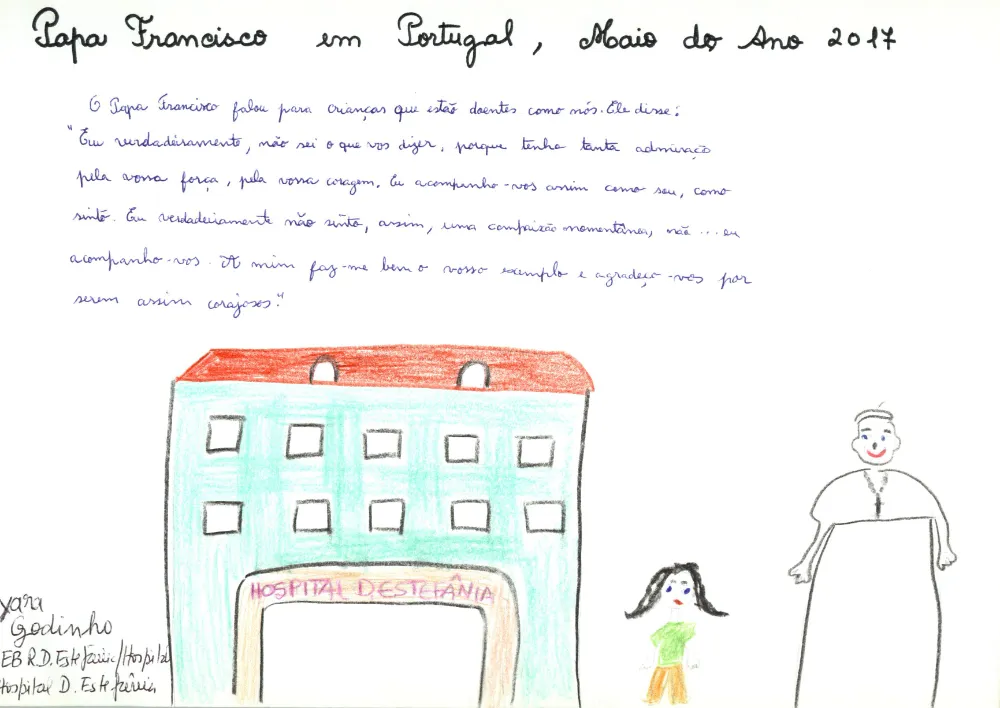 Papa Francisco em Portugal, Maio do Ano 2017
O Papa Francisco falou para crianças que estão doentes como nós. Ele disse:
"Eu verdadeiramente, não sei o que vos dizer, porque tenho tanta admiração
pela vossa força, pela vossa coragem. Eu acompanho-vos assim como sou, como
sinto. Eu verdadeiramente não sinto, assim, uma compaixão momentânea, não... eu
acompanho-vos. A mim faz-me bem o vosso exemplo e agradeço-vos por
serem assim corajosos."
HOSPITAL D ESTEFÂNIA
yara
Godinho
EB R.D. Estefânia/Hospital
Hospital D. Estefânia